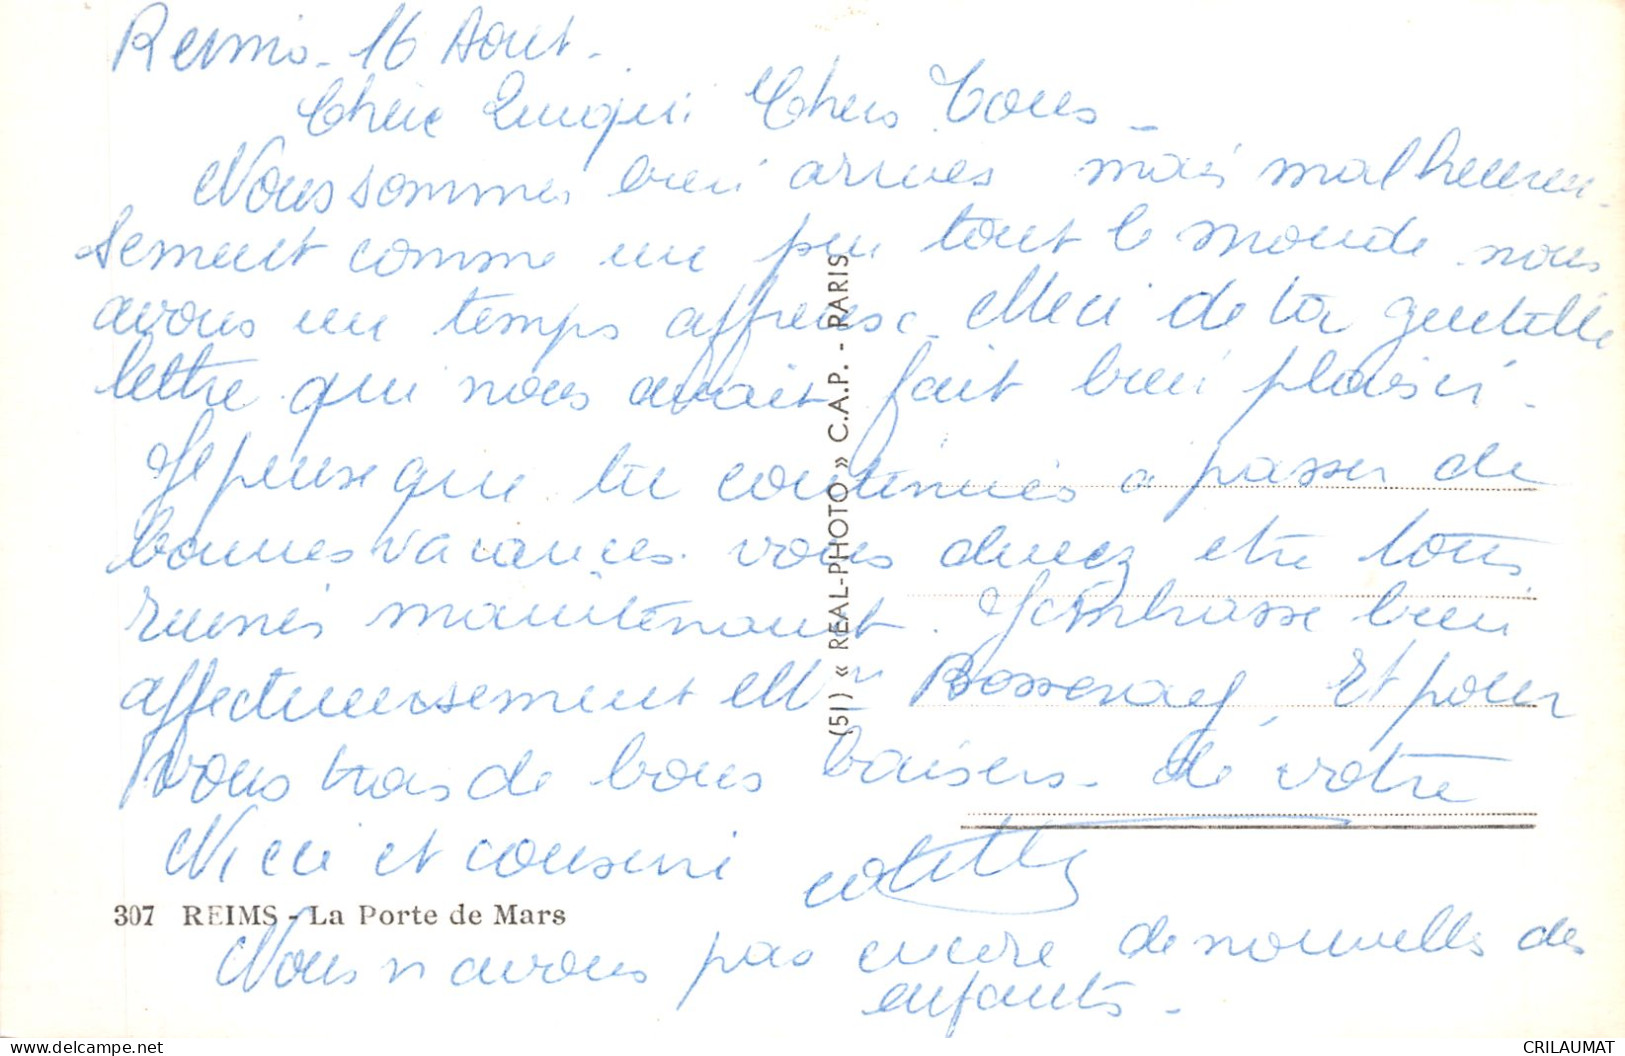 Reims - 16 Août -
Chère Chers Tous -
Nous sommes bien arrivés mais malheureu-
sement comme un peu tout le monde nous
avons un temps affreux. Merci de ta gentille
lettre qui nous avait fait bien plaisir -
Je pense que tu continues a passer de
bonnes vacances. vous devez etre tous
réunis maintenant. J'embrasse bien
affectueusement Mme Et pour
vous trois de bons baisers - de votre
et cousine
307 REIMS - La Porte de Mars
Nous n'avons pas encore de nouvelles des
enfants -
(51) « REAL-PHOTO » C.A.P. - PARIS
CRILAUMAT
delcampe.net